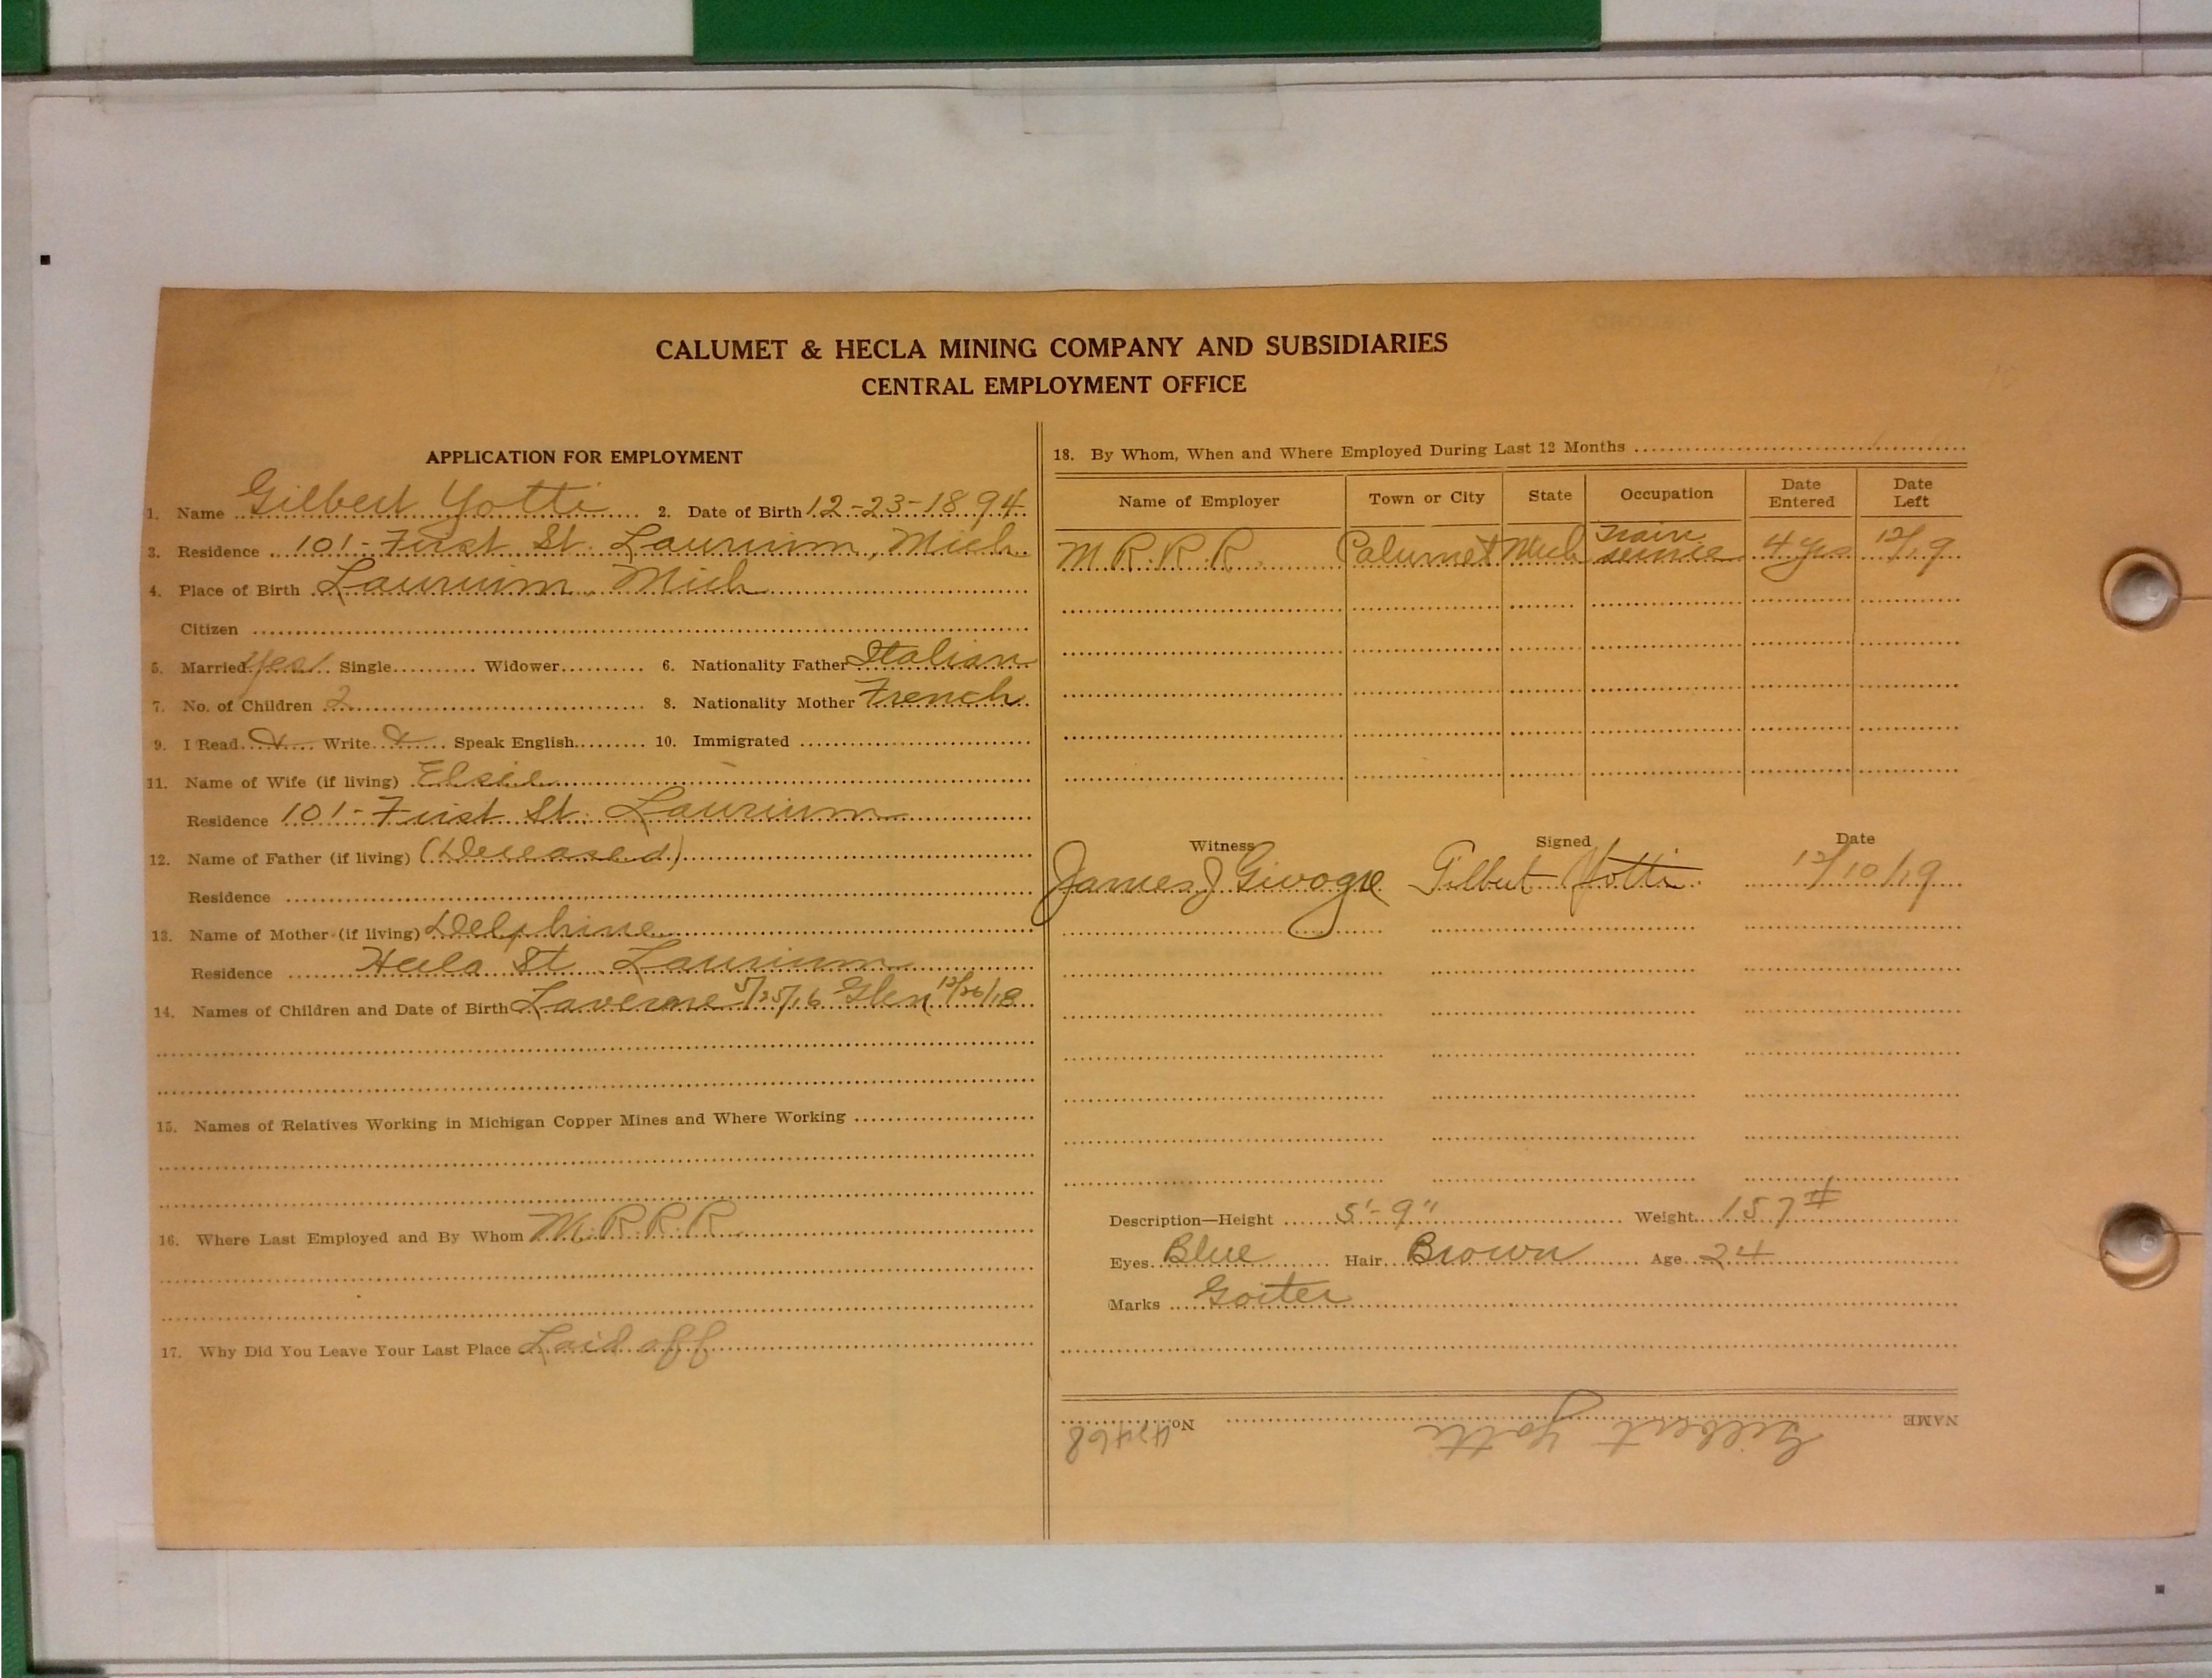 CALUMET & HECLA MINING COMPANY AND SUBSIDIARIES
CENTRAL EMPLOYMENT OFFICE
APPLICATION FOR EMPLOYMENT
1. Name Gilbert Yotti 2. Date of Birth 12-23-1894
3. Residence 101-First St. Laurium, Mich.
4. Place of Birth Laurium Mich
Citizen
5. Married yes Single Widower 6. Nationality Father Italian
7. No. of Children 2 8. Nationality Mother French
9. I Read Write Speak English 10. Immigrated
11. Name of Wife (if living) Elsie
Residence 101-First St. Laurium
12. Name of Father (if living) (Deceased)
Residence
13. Name of Mother (if living) Delphine
Residence Hecla St Laurium
14. Names of Children and Date of Birth Laverne 5/25/16 Glen 12/26/18
15. Names of Relatives Working in Michigan Copper Mines and Where Working
16. Where Last Employed and By Whom M.R.R.R.
17. Why Did You Leave Your Last Place Laid off
18. By Whom, When and Where Employed During Last 12 Months
Name of Employer Town or City State Occupation Date Entered Date Left
M.R.R.R. Calumet Mich Train service 4 yrs 12/19
Witness Signed Date
James J Gilbert Yotti 12/10/19
Description—Height 5'-9" Weight 157#
Eyes Blue Hair Brown Age 24
Marks Goiter
NAME Gilbert Yotti No. 42468